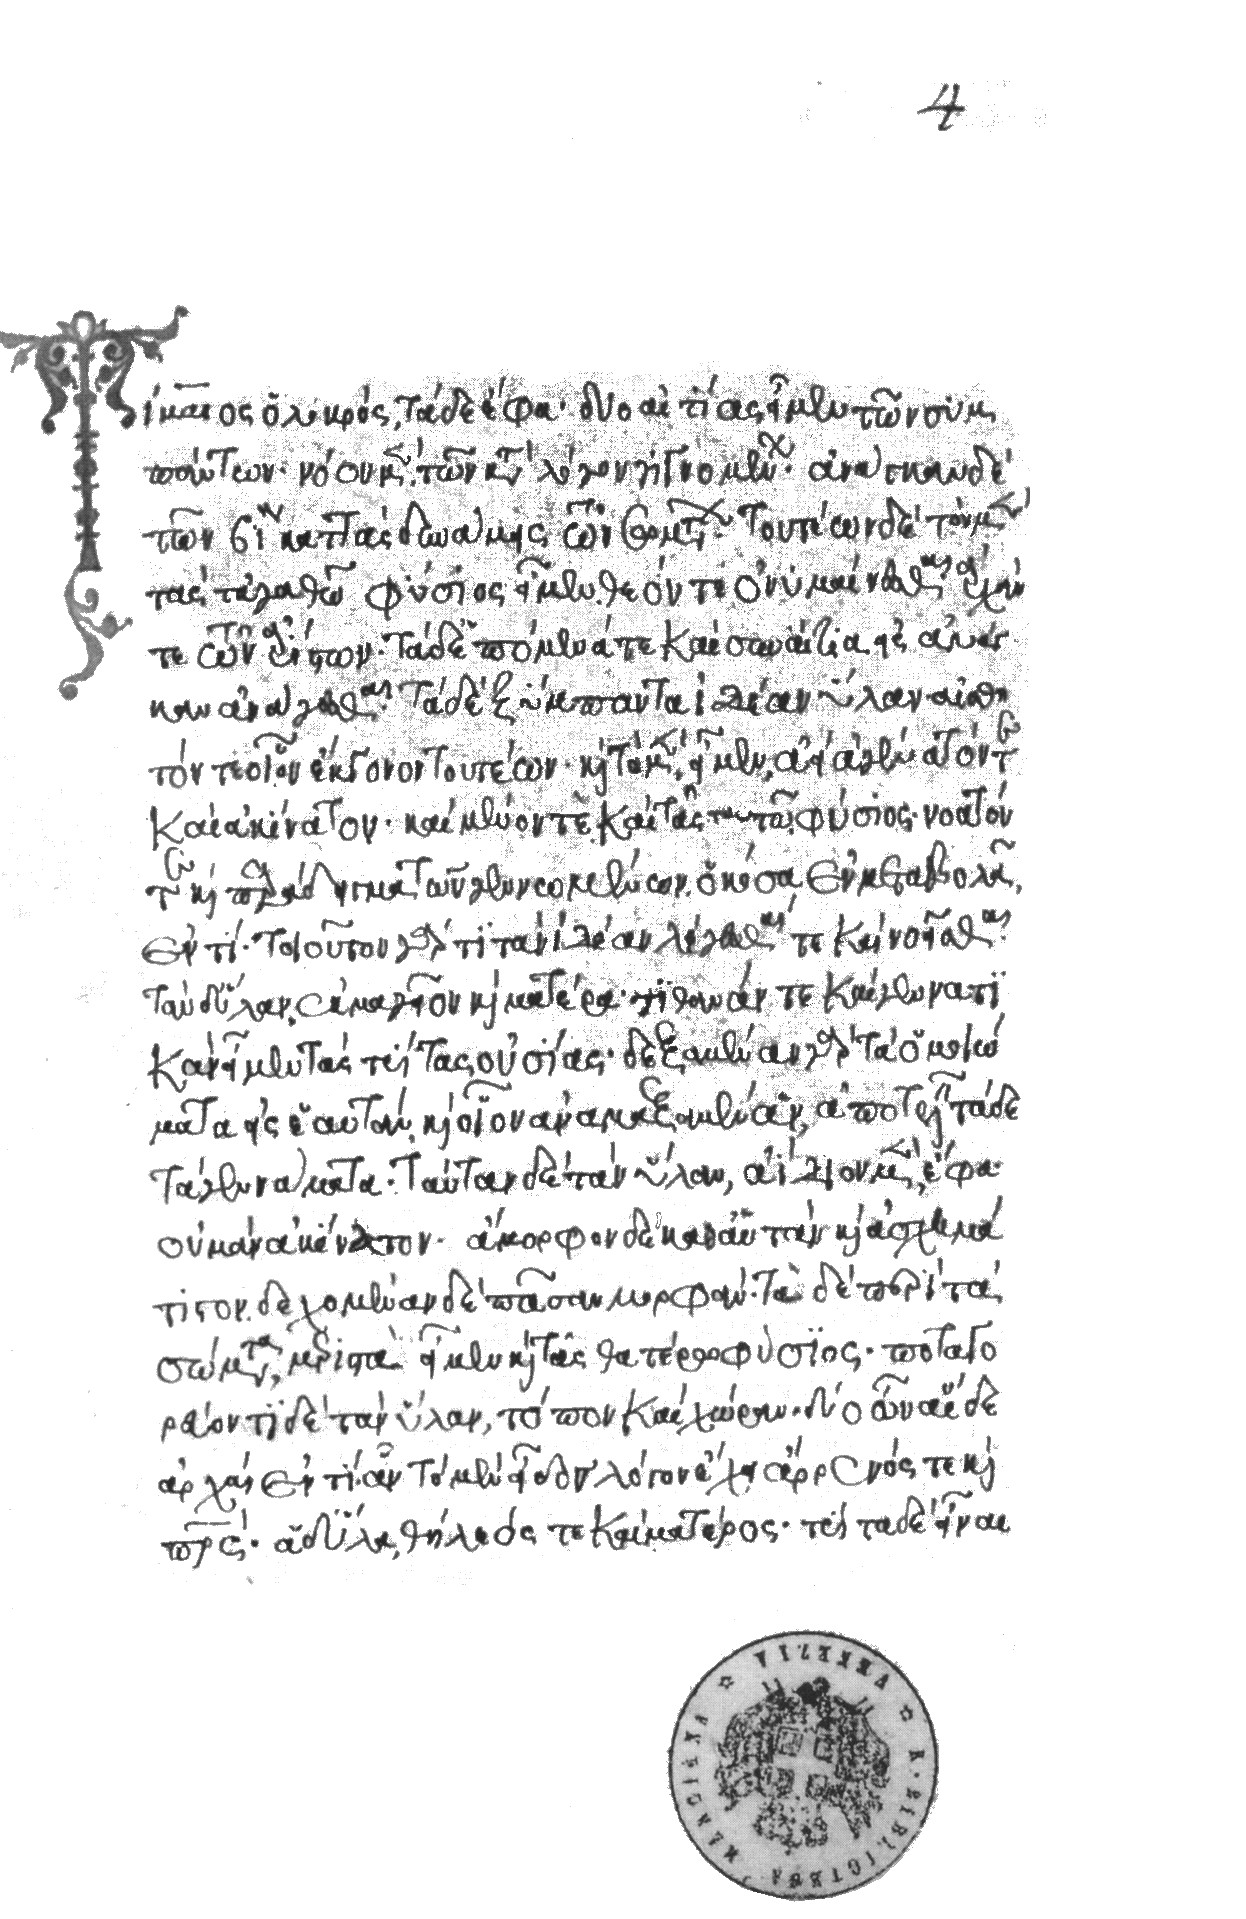 4
Τίμαιος ὁ λοκρός, τάδε ἔφα· δύο αἰτίας ἦμεν τῶν συμ
πάντων· νόον μὲν, τῶν κατὰ λόγον γιγνομένων· ἀνάγκαν δὲ
τῶν βίᾳ καττὰς δυνάμεις τῶν σωμάτων· τουτέων δὲ τὸν μὲν
τᾶς τἀγαθῶ φύσιος ἦμεν. θεόν τε ὀνυμαίνεσθαι ἀρχάν
τε τῶν ἀρίστων· τὰ δὲ ἑπόμενά τε καὶ συναίτια ἐς ἀνάγ
καν ἀνάγεσθαι. τὰ δὲ ξύμπαντα ἰδέαν ὕλαν· αἰσθη
τόν τε οἷον ἔκγονον τουτέων· καὶ τὸ μὲν, ἦμεν, ἀγένατόν τε
καὶ ἀκίνατον· καὶ μένον τε. καὶ τᾶς ταυτῶ φύσιος· νοατόν
τε καὶ παράδειγμα τῶν γενομένων. ὁκόσα ἐν μεταβολᾷ,
ἐντί· τοιοῦτον γάρ τι τὰν ἰδέαν λέγεσθαί τε καὶ νοῆσθαι.
τὰν δ' ὕλαν, ἐκμαγεῖον καὶ ματέρα· τιθάναν τε καὶ γενατι
κὰν ἦμεν τᾶς τρίτας οὐσίας· δεξαμέναν γὰρ τὰ ὁμοιώ
ματα ἐς ἑαυτὰν. καὶ οἷον ἀναμαξαμέναν, ἀποτελῆν τάδε
τὰ γενάματα. ταύταν δὲ τὰν ὕλαν, ἀΐδιον μὲν, ἔφα·
οὐ μὰν ἀκίνατον· ἄμορφον δὲ καθ' αὑτὰν καὶ ἀσχημά
τιστον. δεχομέναν δὲ πᾶσαν μορφάν· τὰν δὲ περὶ τὰ
σώματα, μεριστὰν ἦμεν καὶ τᾶς θατέρω φύσιος· ποταγο
ρεύοντι δὲ τὰν ὕλαν, τόπον καὶ χώραν· δύο ὦν αἵδε
ἀρχαὶ ἐντὶ. ἇν τὸ μὲν εἶδος λόγον ἔχει ἄρρενός τε καὶ
πατρός· ἁ δ' ὕλα, θήλεός τε καὶ ματέρος· τρίτα δὲ ἦναι